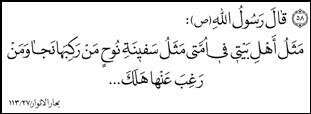 ۵۸ قالَ رَسُولُ اللهِ (ص):
مَثَلُ اَهْلِ بَيْتي في اُمَّتي مَثَلُ سَفينَةِ نُوحٍ مَنْ رَكِبَها نَجا وَمَنْ
رَغِبَ عَنْها هَلَكَ...
بحارالانوار/۲۷/۱۱۳